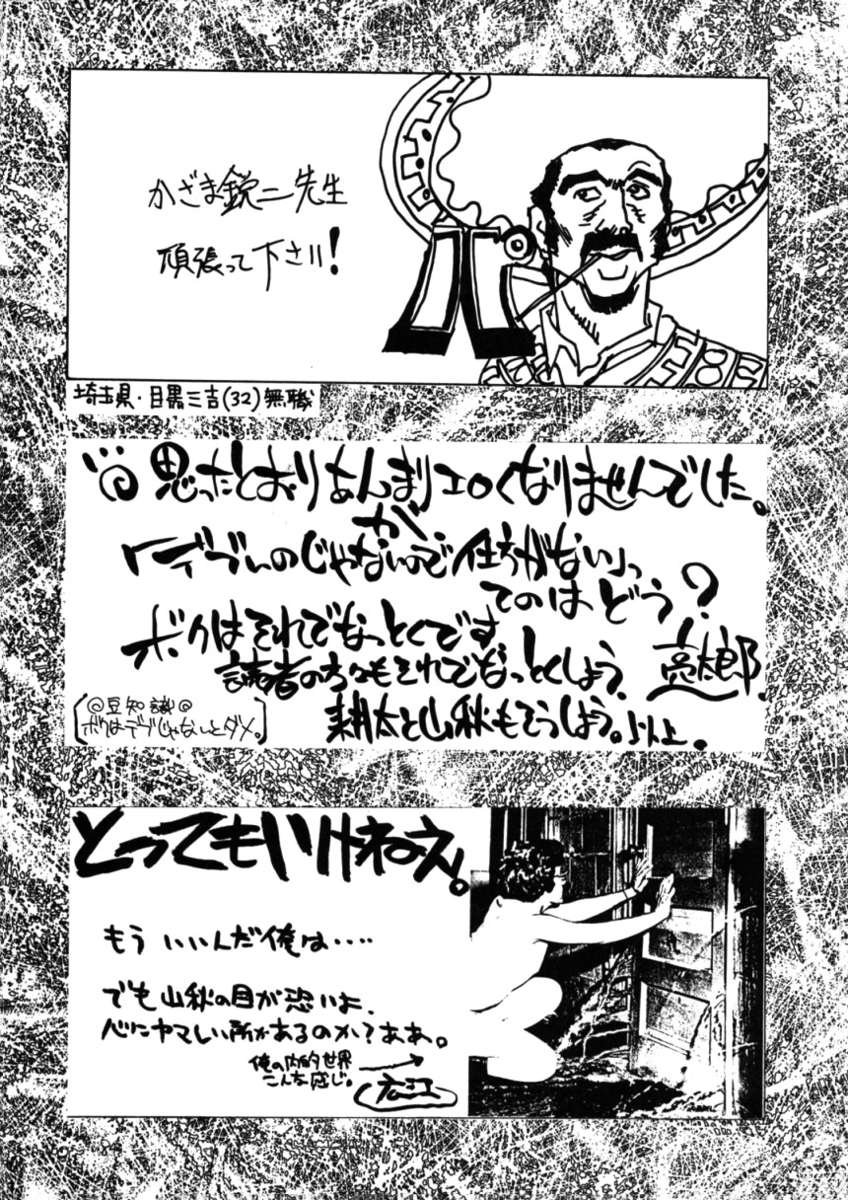 かざま鋭二先生
頑張って下さい!
埼玉県・目黒三吉(32)無職
思ったとおりあんまりエロくなりませんでした。
が
「デブいのじゃないので仕方がない」っ
てのはどう?
ボクはそれでなっとくです
読者の方々もそれでなっとくしよう。
亮太郎.
耕太と山秋もそうしよう。以上.
@豆知識@
ボクはデブじゃないとダメ。
とってもいけねえ!
もういいんだ俺は・・・・
でも山秋の目が恐いよ.
心にヤマしい所があるのか?ああ。
俺の内的世界
こんな感じ。
広江